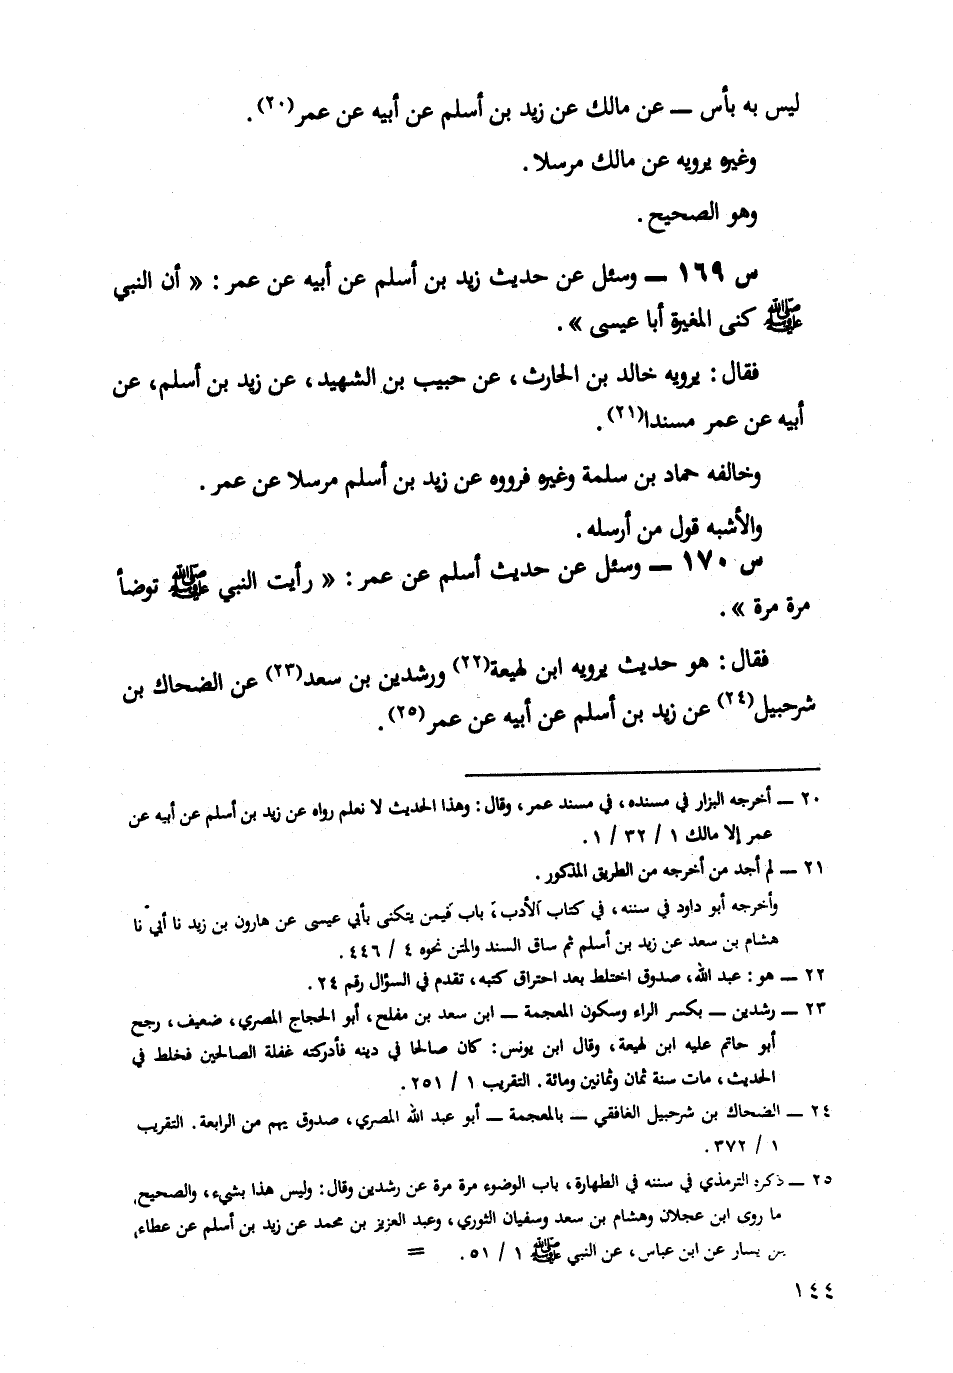 ليس به بأس ــ عن مالك عن زيد بن أسلم عن أبيه عن عمر(٢٠).
وغيره يرويه عن مالك مرسلا.
وهو الصحيح.
س ١٦٩ ــ وسئل عن حديث زيد بن أسلم عن أبيه عن عمر: « أن النبي
ﷺ كنى المغيرة أبا عيسى ».
فقال: يرويه خالد بن الحارث، عن حبيب بن الشهيد، عن زيد بن أسلم، عن
أبيه عن عمر مسندا(٢١).
وخالفه حماد بن سلمة وغيره فرووه عن زيد بن أسلم مرسلا عن عمر.
والأشبه قول من أرسله.
س ١٧٠ ــ وسئل عن حديث أسلم عن عمر: « رأيت النبي ﷺ توضأ
مرة مرة ».
فقال: هو حديث يرويه ابن لهيعة(٢٢) ورشدين بن سعد(٢٣) عن الضحاك بن
شرحبيل(٢٤) عن زيد بن أسلم عن أبيه عن عمر(٢٥).
٢٠ ــ أخرجه البزار في مسنده، في مسند عمر، وقال: وهذا الحديث لا نعلم رواه عن زيد بن أسلم عن أبيه عن
عمر إلا مالك ١ / ٣٢ / ١.
٢١ ــ لم أجد من أخرجه من الطريق المذكور.
وأخرجه أبو داود في سننه، في كتاب الأدب، باب فيمن يتكنى بأبي عيسى عن هارون بن زيد نا أبي نا
هشام بن سعد عن زيد بن أسلم ثم ساق السند والمتن نحوه ٤ / ٤٤٦.
٢٢ ــ هو: عبد الله، صدوق اختلط بعد احتراق كتبه، تقدم في السؤال رقم ٢٤.
٢٣ ــ رشدين ــ بكسر الراء وسكون المعجمة ــ ابن سعد بن مفلح، أبو الحجاج المصري، ضعيف، رجح
أبو حاتم عليه ابن لهيعة، وقال ابن يونس: كان صالحا في دينه فأدركته غفلة الصالحين فخلط في
الحديث، مات سنة ثمان وثمانين ومائة. التقريب ١ / ٢٥١.
٢٤ ــ الضحاك بن شرحبيل الغافقي ــ بالمعجمة ــ أبو عبد الله المصري، صدوق يهم من الرابعة. التقريب
١ / ٣٧٢.
٢٥ ــ ذكره الترمذي في سننه في الطهارة، باب الوضوء مرة مرة عن رشدين وقال: وليس هذا بشيء، والصحيح
ما روى ابن عجلان وهشام بن سعد وسفيان الثوري، وعبد العزيز بن محمد عن زيد بن أسلم عن عطاء
بن يسار عن ابن عباس، عن النبي ﷺ ١ / ٥١. =
١٤٤